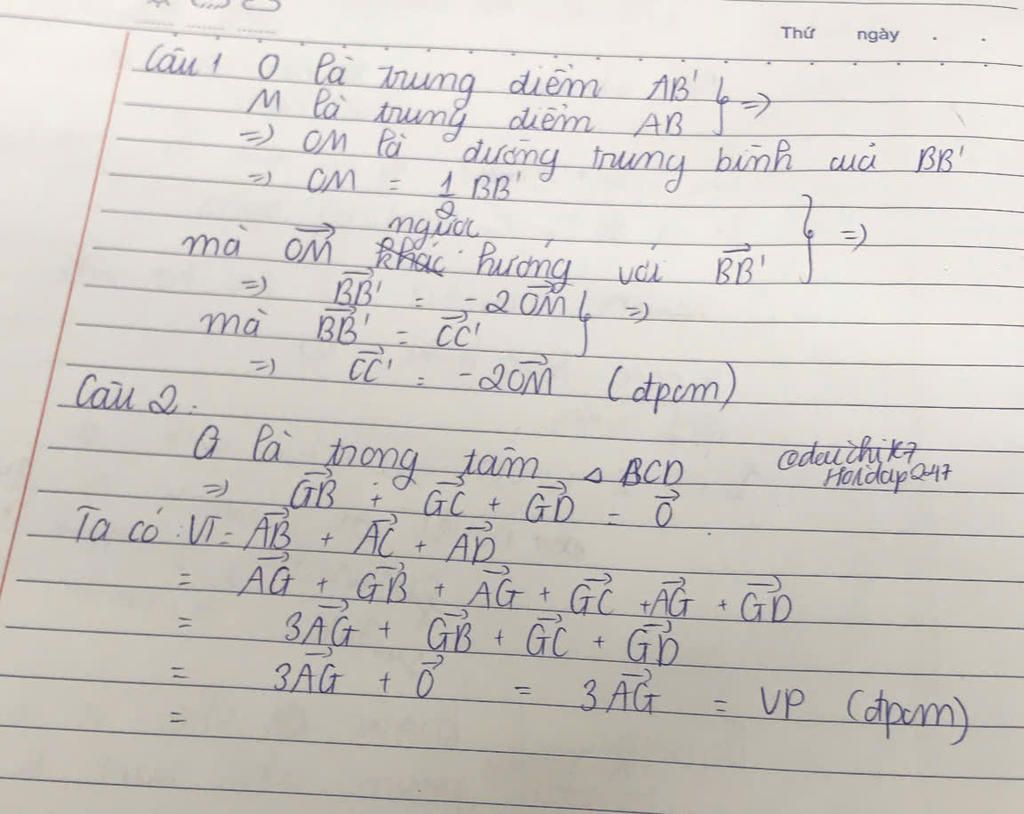 Thứ ngày . .
Câu 1 O là trung điểm AB' } =>
M là trung điểm AB
=> OM là đường trung bình của BB'
=> OM = 1/2 BB'
ngược
mà OM khác hướng với BB' } =>
=> BB' = -2OM } =>
mà BB' = CC'
=> CC' = -2OM (đpcm)
Câu 2.
G là trọng tâm △ BCD
@daichik7
Hoidap247
=> GB + GC + GD = 0
Ta có : VT = AB + AC + AD
= AG + GB + AG + GC + AG + GD
= 3AG + GB + GC + GD
= 3AG + 0 = 3AG = VP (đpcm)
=